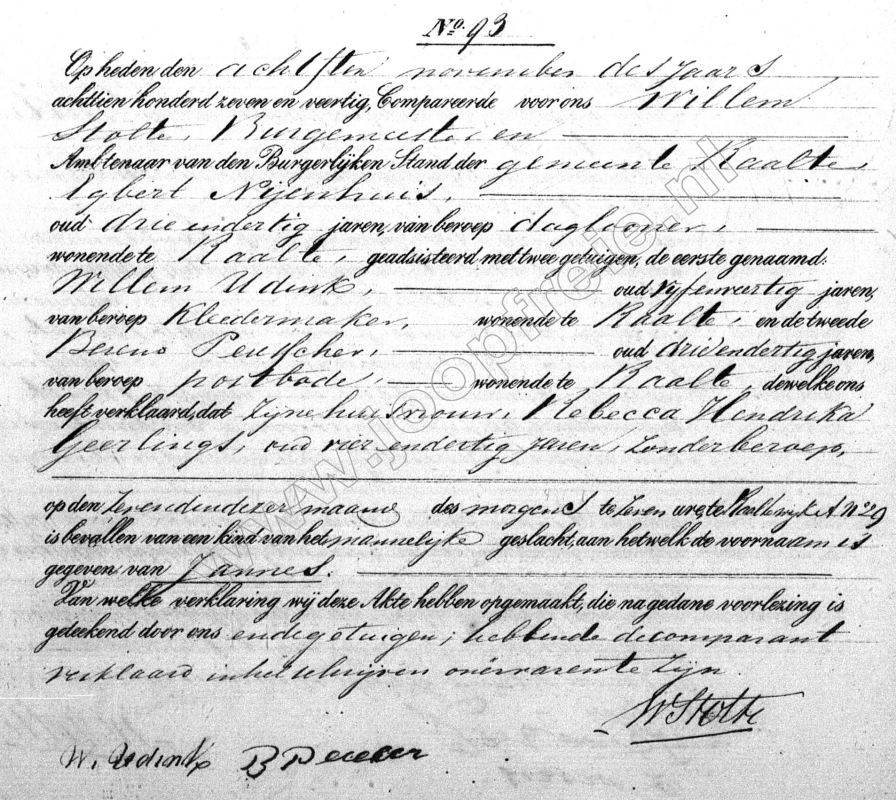 No. 93
Op heden den achtsten november des jaars
achttien honderd zeven en veertig, Compareerde voor ons Willem
Stolte, Burgemeester en
Ambtenaar van den Burgerlijken Stand der gemeente Raalte,
Egbert Nijenhuis,
oud drie en dertig jaren, van beroep daglooner,
wonende te Raalte, geadsisteerd met twee getuigen, de eerste genaamd:
Willem Udink, oud vyfenveertig jaren,
van beroep Kleedermaker, wonende te Raalte, en de tweede
Berend Peusscher, oud drieendertig jaren,
van beroep postbode, wonende te Raalte, dewelke ons
heeft verklaard, dat zyne huisvrouw, Rebecca Hendrika
Geerlings, oud vier en dertig jaren, zonder beroep,
op den zevenden dezer maand des morgens te zeven ure te Raalte wyk A. No 29
is bevallen van een kind van het mannelyke geslacht, aan hetwelk de voornaam is
gegeven van Jannes.
Van welke verklaring wij deze Akte hebben opgemaakt, die na gedane voorlezing is
geteekend door ons en de getuigen; hebbende de comparant
verklaard in het schryven onervaren te zyn.
W Stolte
W. Udink B
www.joopfrete.nl